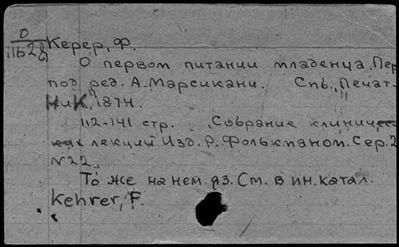 О
11628
Керер, Ф.
О первом питании младенца. Пер.
под ред. А. Марсикани. Спб., "Печат-
ник", 1874.
112-141 стр. Собрание клиничес-
ких лекций. Изд. Р. Фолькманом. Сер. 2
№ 22.
То же на нем. яз. См. в ин. катал.
Kehrer, F.